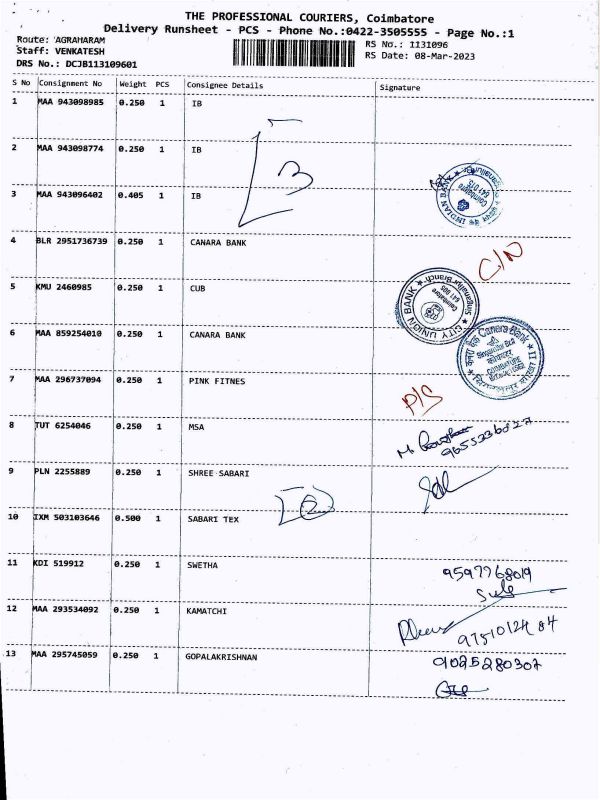 THE PROFESSIONAL COURIERS, Coimbatore
Delivery Runsheet - PCS - Phone No.:0422-3505555 - Page No.:1
Route: AGRAHARAM
Staff: VENKATESH
DRS No.: DCJB113109601
RS No.: 1131096
RS Date: 08-Mar-2023
S No Consignment No Weight PCS Consignee Details Signature
1 MAA 943098985 0.250 1 IB
2 MAA 943098774 0.250 1 IB
3
3 MAA 943096402 0.405 1 IB
INDIAN BANK
Coimbatore
4 BLR 2951736739 0.250 1 CANARA BANK
C/N
5 KMU 2460985 0.250 1 CUB
CITY UNION BANK
Singanallur Branch
Coimbatore
641 005
6 MAA 859254010 0.250 1 CANARA BANK
केनरा बैंक Canara Bank
COIMBATORE
II
7 MAA 296737094 0.250 1 PINK FITNES
P/S
8 TUT 6254046 0.250 1 MSA
9 PLN 2255889 0.250 1 SHREE SABARI
2
10 IXM 503103646 0.500 1 SABARI TEX
11 KDI 519912 0.250 1 SWETHA
9597768019
12 MAA 293534092 0.250 1 KAMATCHI
13 MAA 295745059 0.250 1 GOPALAKRISHNAN
9025280307